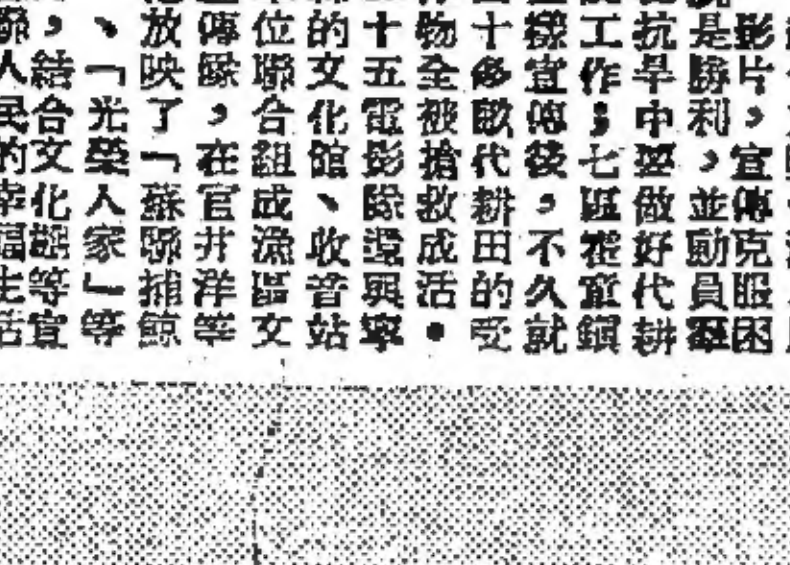 影片,宣傳克服困
是勝利,並動員羣
抗旱中要做好代耕
工作;七區霍童鎮
樣宣傳後,不久就
十多畝代耕田的受
物全被搶救成活。
十五電影隊還與寧
的文化館、收音站
位聯合組成漁區文
傳隊,在官井洋等
放映了「蘇聯捕鯨
、「光榮人家」等
,結合文化館等宣
聯人民的幸福生活